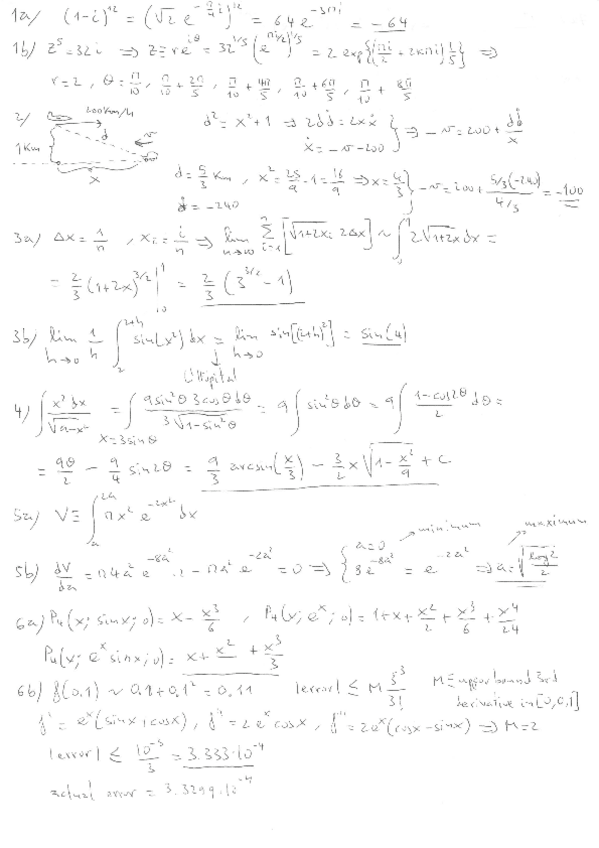 1a) (1-i)^12 = (√2 e^(-π/4 i))^12 = 64 e^(-3πi) = -64
1b) z^5 = 32i ⇒ z = r e^(iθ) = 32^(1/5) (e^(πi/2))^(1/5) = 2 exp{[πi/2 + 2kπi] 1/5} ⇒
r = 2, θ = π/10, π/10 + 2π/5, π/10 + 4π/5, π/10 + 6π/5, π/10 + 8π/5
2) 200 Km/h d v 1 Km x
d² = x² + 1 ⇒ 2dḋ = 2xẋ
ẋ = -v - 200 } ⇒ -v = 200 + dḋ/x
d = 5/3 Km, x² = 25/9 - 1 = 16/9 ⇒ x = 4/3
ḋ = -240 } -v = 200 + 5/3(-240)/(4/3) = -100
3a) Δx = 1/n, xi = i/n ⇒ lim n→∞ Σ i=1 n [√(1+2xi) 2Δx] ~ ∫₀¹ 2√(1+2x) dx =
= 2/3 (1+2x)^(3/2) |₀¹ = 2/3 (3^(3/2) - 1)
3b) lim h→0 1/h ∫₂^(2+h) sin(x²) dx = lim h→0 sin[(2+h)²] = sin(4)
L'Hopital
4) ∫ x² dx/√(9-x²) = ∫ 9 sin²θ 3cosθ dθ / 3√(1-sin²θ) = 9 ∫ sin²θ dθ = 9 ∫ (1-cos2θ)/2 dθ =
x = 3sinθ
= 9θ/2 - 9/4 sin2θ = 9/3 arcsin(x/3) - 3/2 x √(1 - x²/9) + C
5a) V = ∫ₐ^(2a) πx² e^(-2x²) dx
minimum maximum
5b) dV/da = π4a² e^(-8a²) · 2 - πa² e^(-2a²) = 0 ⇒ { a = 0
8e^(-8a²) = e^(-2a²) ⇒ a = √(log2/2)
6a) P₄(x; sinx; 0) = x - x³/6, P₄(x; e^x; 0) = 1 + x + x²/2 + x³/6 + x⁴/24
P₄(x; e^x sinx; 0) = x + x² + x³/3
6b) f(0,1) ~ 0.1 + 0.1² = 0.11 |error| ≤ M ξ³/3! M ≡ upper bound 3rd
derivative in [0,0,1]
f' = e^x (sinx + cosx), f'' = 2e^x cosx, f''' = 2e^x (cosx - sinx) ⇒ M = 2
|error| ≤ 10^-3/3 = 3.333·10^-4
actual error = 3.3299·10^-4